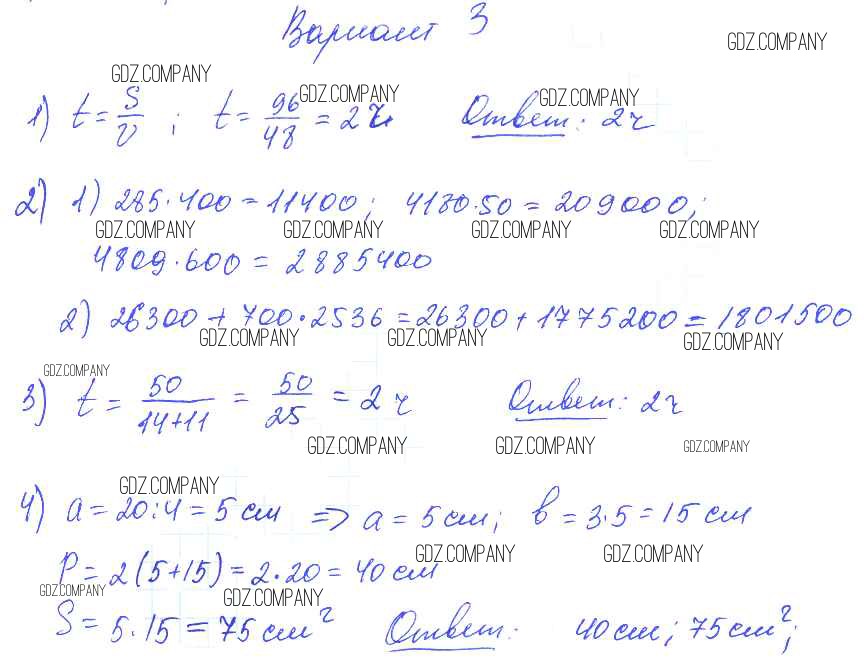 Вариант 3
GDZ.COMPANY
GDZ.COMPANY GDZ.COMPANY GDZ.COMPANY
1) t = S/v ; t = 96/48 = 2 ч. Ответ: 2 ч
2) 1) 285·400 = 11400; 4180·50 = 209000;
GDZ.COMPANY GDZ.COMPANY GDZ.COMPANY GDZ.COMPANY
4809·600 = 2885400
2) 26300 + 700·2536 = 26300 + 1775200 = 1801500
GDZ.COMPANY GDZ.COMPANY GDZ.COMPANY
GDZ.COMPANY
3) t = 50/(14+11) = 50/25 = 2 ч Ответ: 2 ч
GDZ.COMPANY GDZ.COMPANY GDZ.COMPANY
GDZ.COMPANY
4) a = 20:4 = 5 см => a = 5 см; b = 3·5 = 15 см
GDZ.COMPANY GDZ.COMPANY
P = 2(5+15) = 2·20 = 40 см
GDZ.COMPANY GDZ.COMPANY
S = 5·15 = 75 см² Ответ: 40 см; 75 см²;